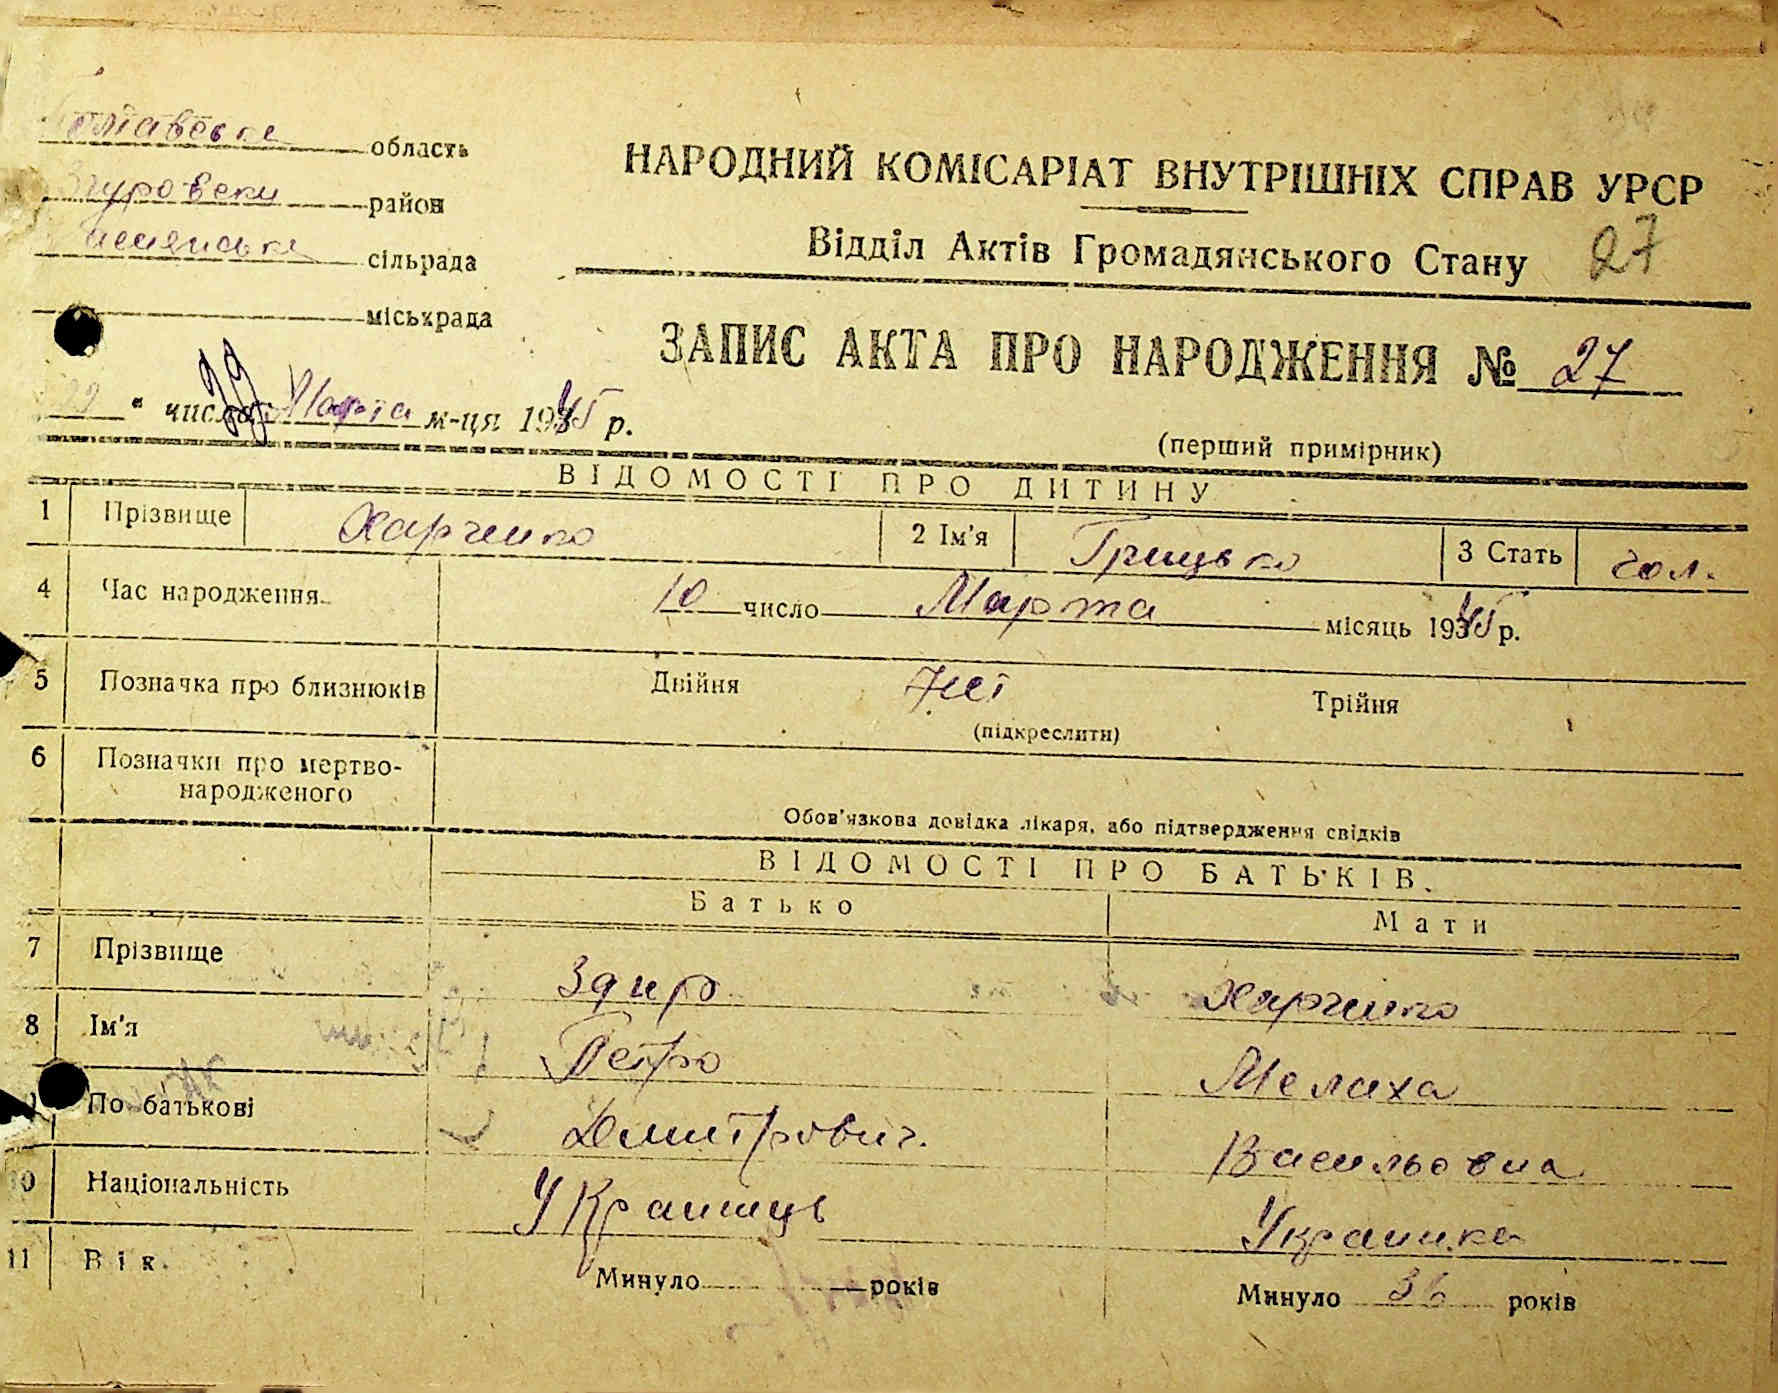 Полтавська область
Згуровски район
сільрада
міськрада
НАРОДНИЙ КОМІСАРІАТ ВНУТРІШНІХ СПРАВ УРСР
Відділ Актів Громадянського Стану 27
ЗАПИС АКТА ПРО НАРОДЖЕННЯ № 27
" число Марта м-ця 1945 р.
(перший примірник)
ВІДОМОСТІ ПРО ДИТИНУ
1 Прізвище Харченко 2 Ім'я Грицько 3 Стать чол.
4 Час народження 10 число Марта місяць 1945 р.
5 Позначка про близнюків Двійня Ні Трійня
(підкреслити)
6 Позначки про мертво-
народженого
Обов'язкова довідка лікаря, або підтвердження свідків
ВІДОМОСТІ ПРО БАТЬКІВ.
Батько Мати
7 Прізвище Здир Харченко
8 Ім'я Петро Мелаха
По батькові Дмитрович. Васильовна
10 Національність Украинець Украинка
11 Вік. Минуло років Минуло 36 років